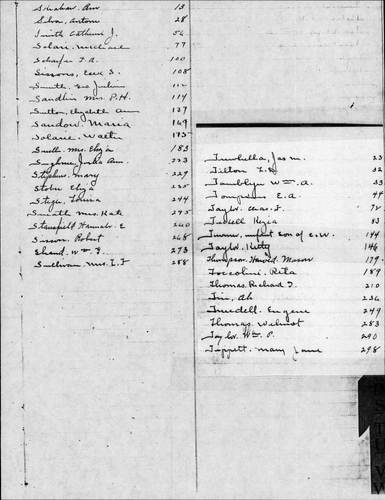 Ann 13
Silva, Antone 28
Smith Catherine J. 54
Solari, Michael 77
Schafer F. A. 100
Sissons, S. 108
Smith, Geo 112
Sandlin Mrs. P. H. 114
Sutton, Elizabeth Ann 137
Sandow, Maria 149
Solari, Walter 175
Smith, Mrs. Eliza 183
Ann. 223
Stephens, Mary 229
Stobie Eliza 235
Stege, Louisa 244
Smith Mrs. Kate 275
Stansfield Hannah E. 240
Sisson, Robert 268
Wm. F. 273
Sullivan, Mrs. I. F. 288
Truebella, Jas m. 23
Tilton 32
Tamblyn Wm. A. 33
Tompkins E. A. 44
Taylor, Chas. F. 75
Tisdell Kezia 83
infant son of E. W. 144
Taylor, Kitty 146
Thompson, Harold Mason 179
Toccolini, Rita 189
Thomas, Richard T. 210
Tin, Ah 236
Trudell, Eugene 249
Thomas, Wilmot 283
Taylor, Wm. P. 290
Tippett, Mary Jane 298